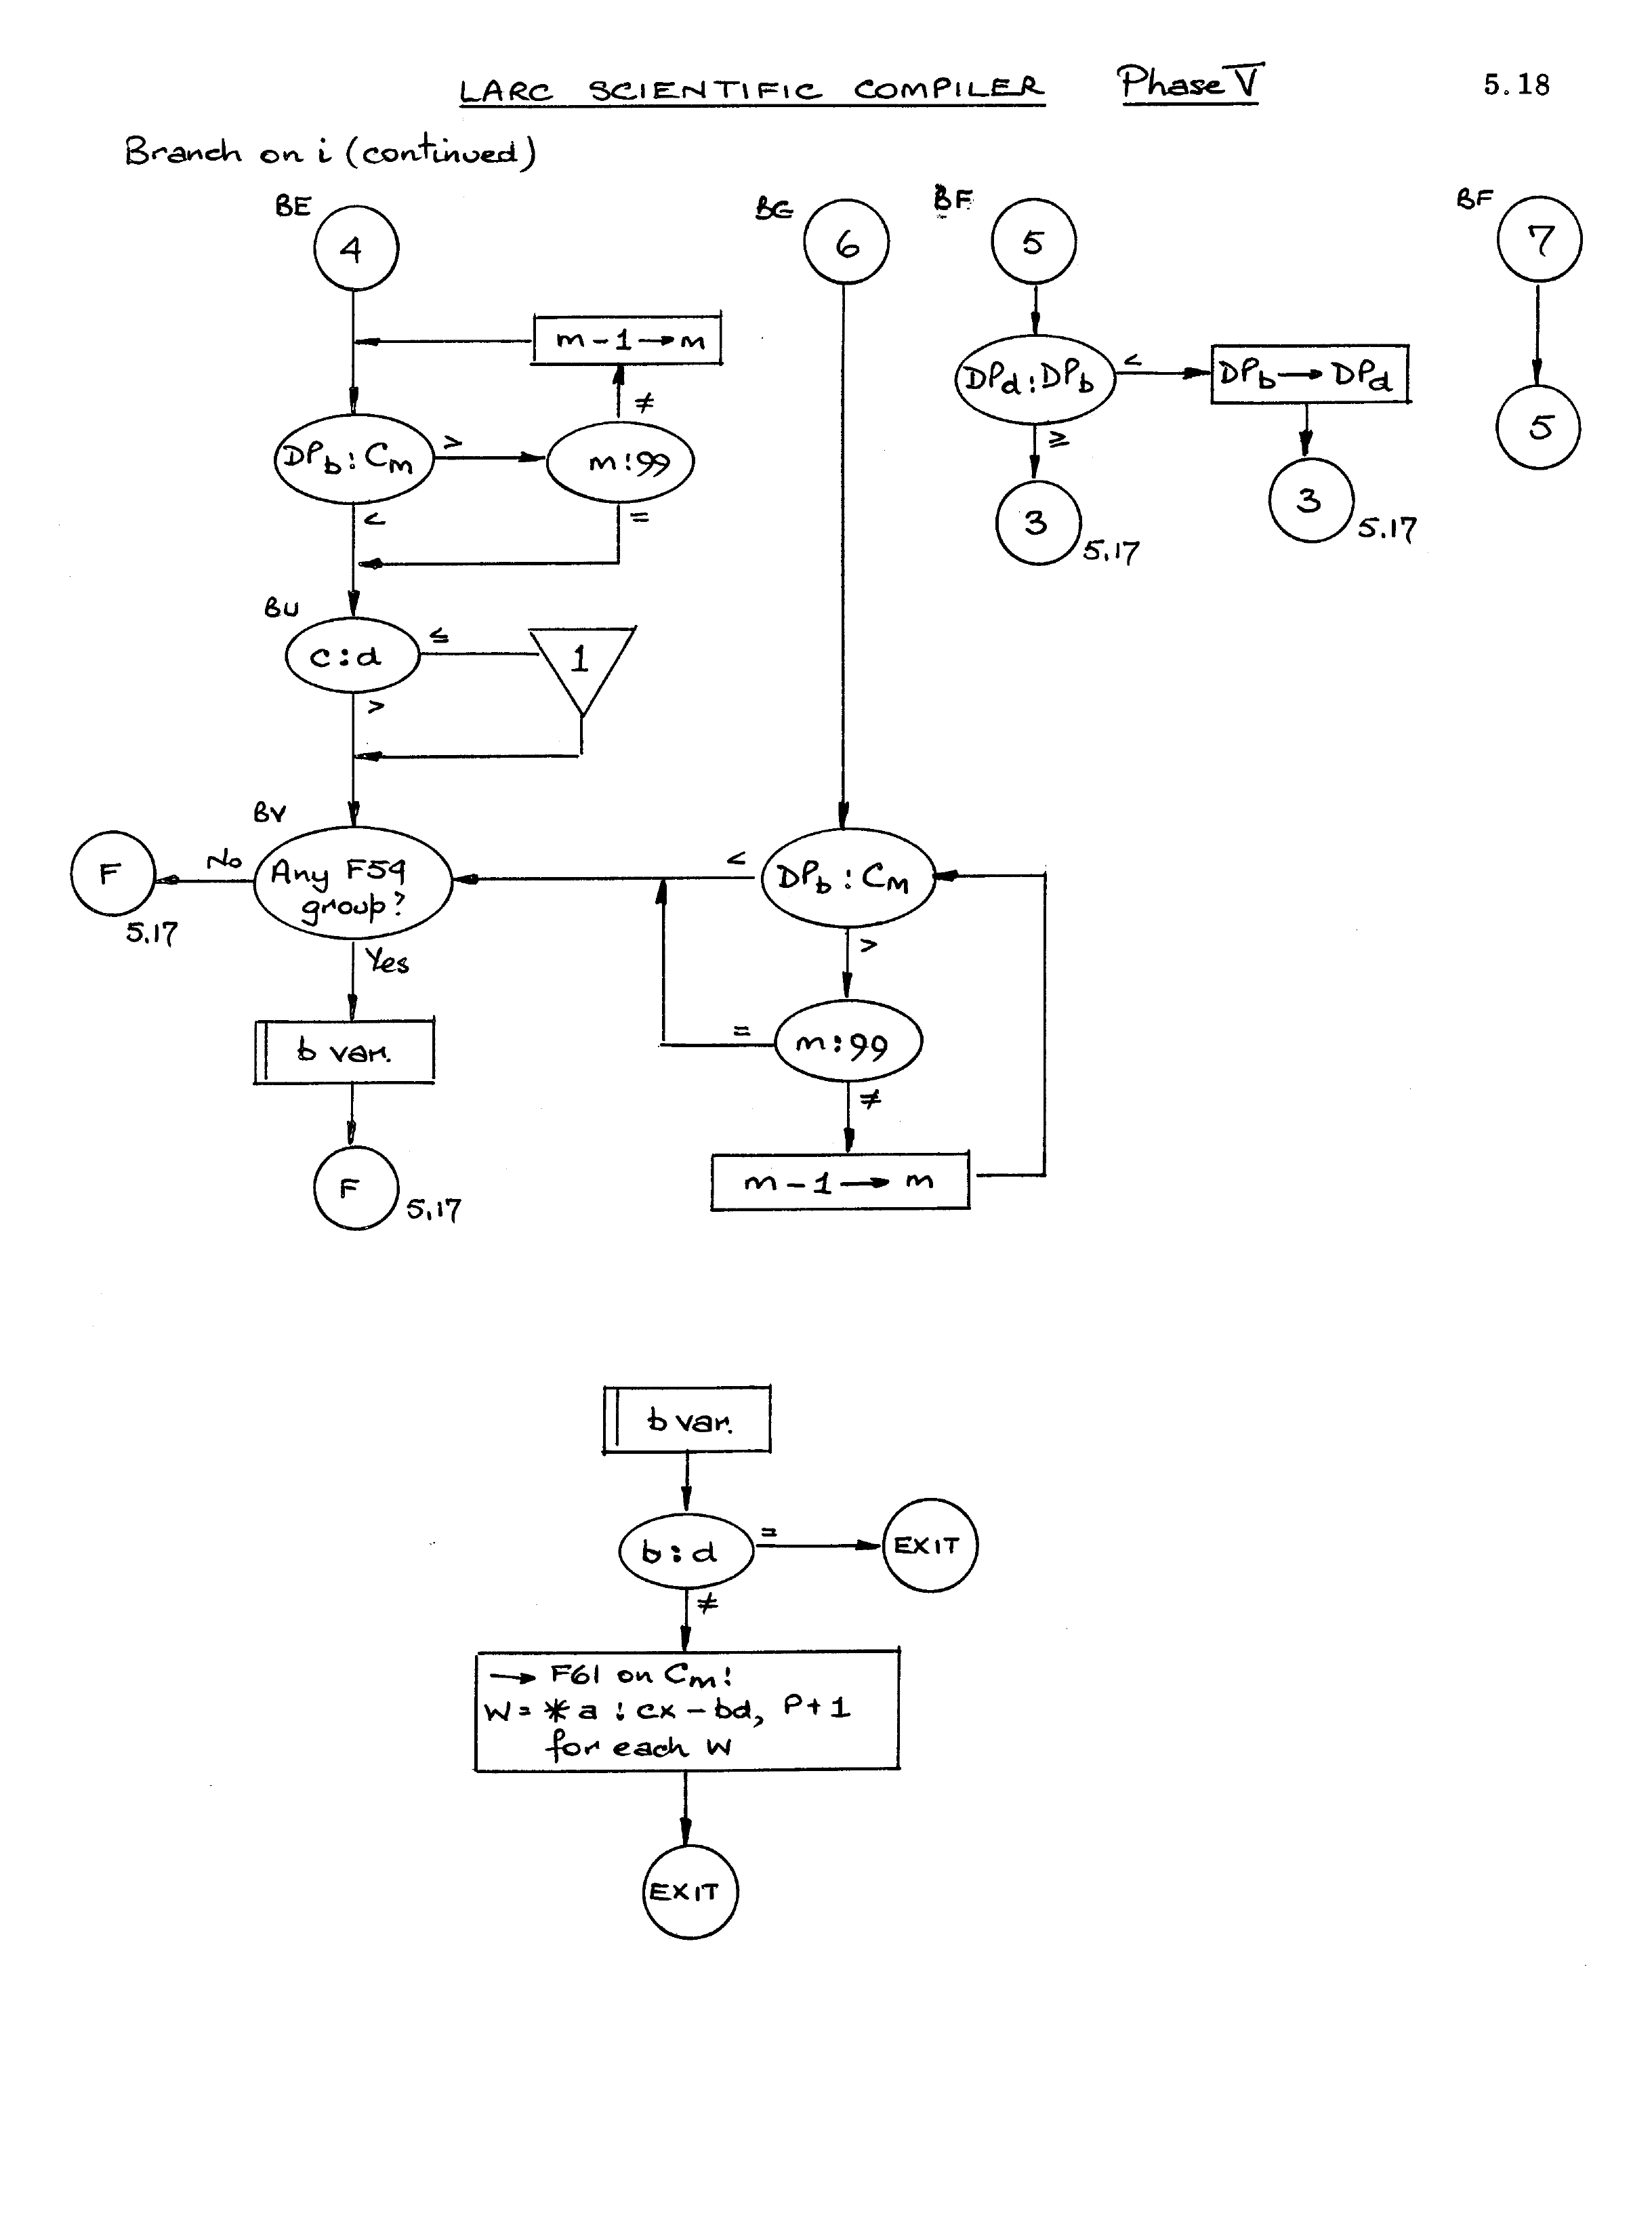 LARC SCIENTIFIC COMPILER Phase V 5.18
Branch on i (continued)
BE
4
m - 1 → m
≠
DPb : Cm
>
m : 99
<
=
BU
c : d
≤
1
>
BV
Any F59
group?
No
F
5.17
Yes
b var.
F
5.17
BG
6
DPb : Cm
<
>
m : 99
=
≠
m - 1 → m
BF
5
DPd : DPb
<
DPb → DPd
≥
3
5.17
3
5.17
BF
7
5
b var.
b : d
=
EXIT
≠
→ F61 on Cm:
W = * a : cx - bd, P + 1
for each W
EXIT